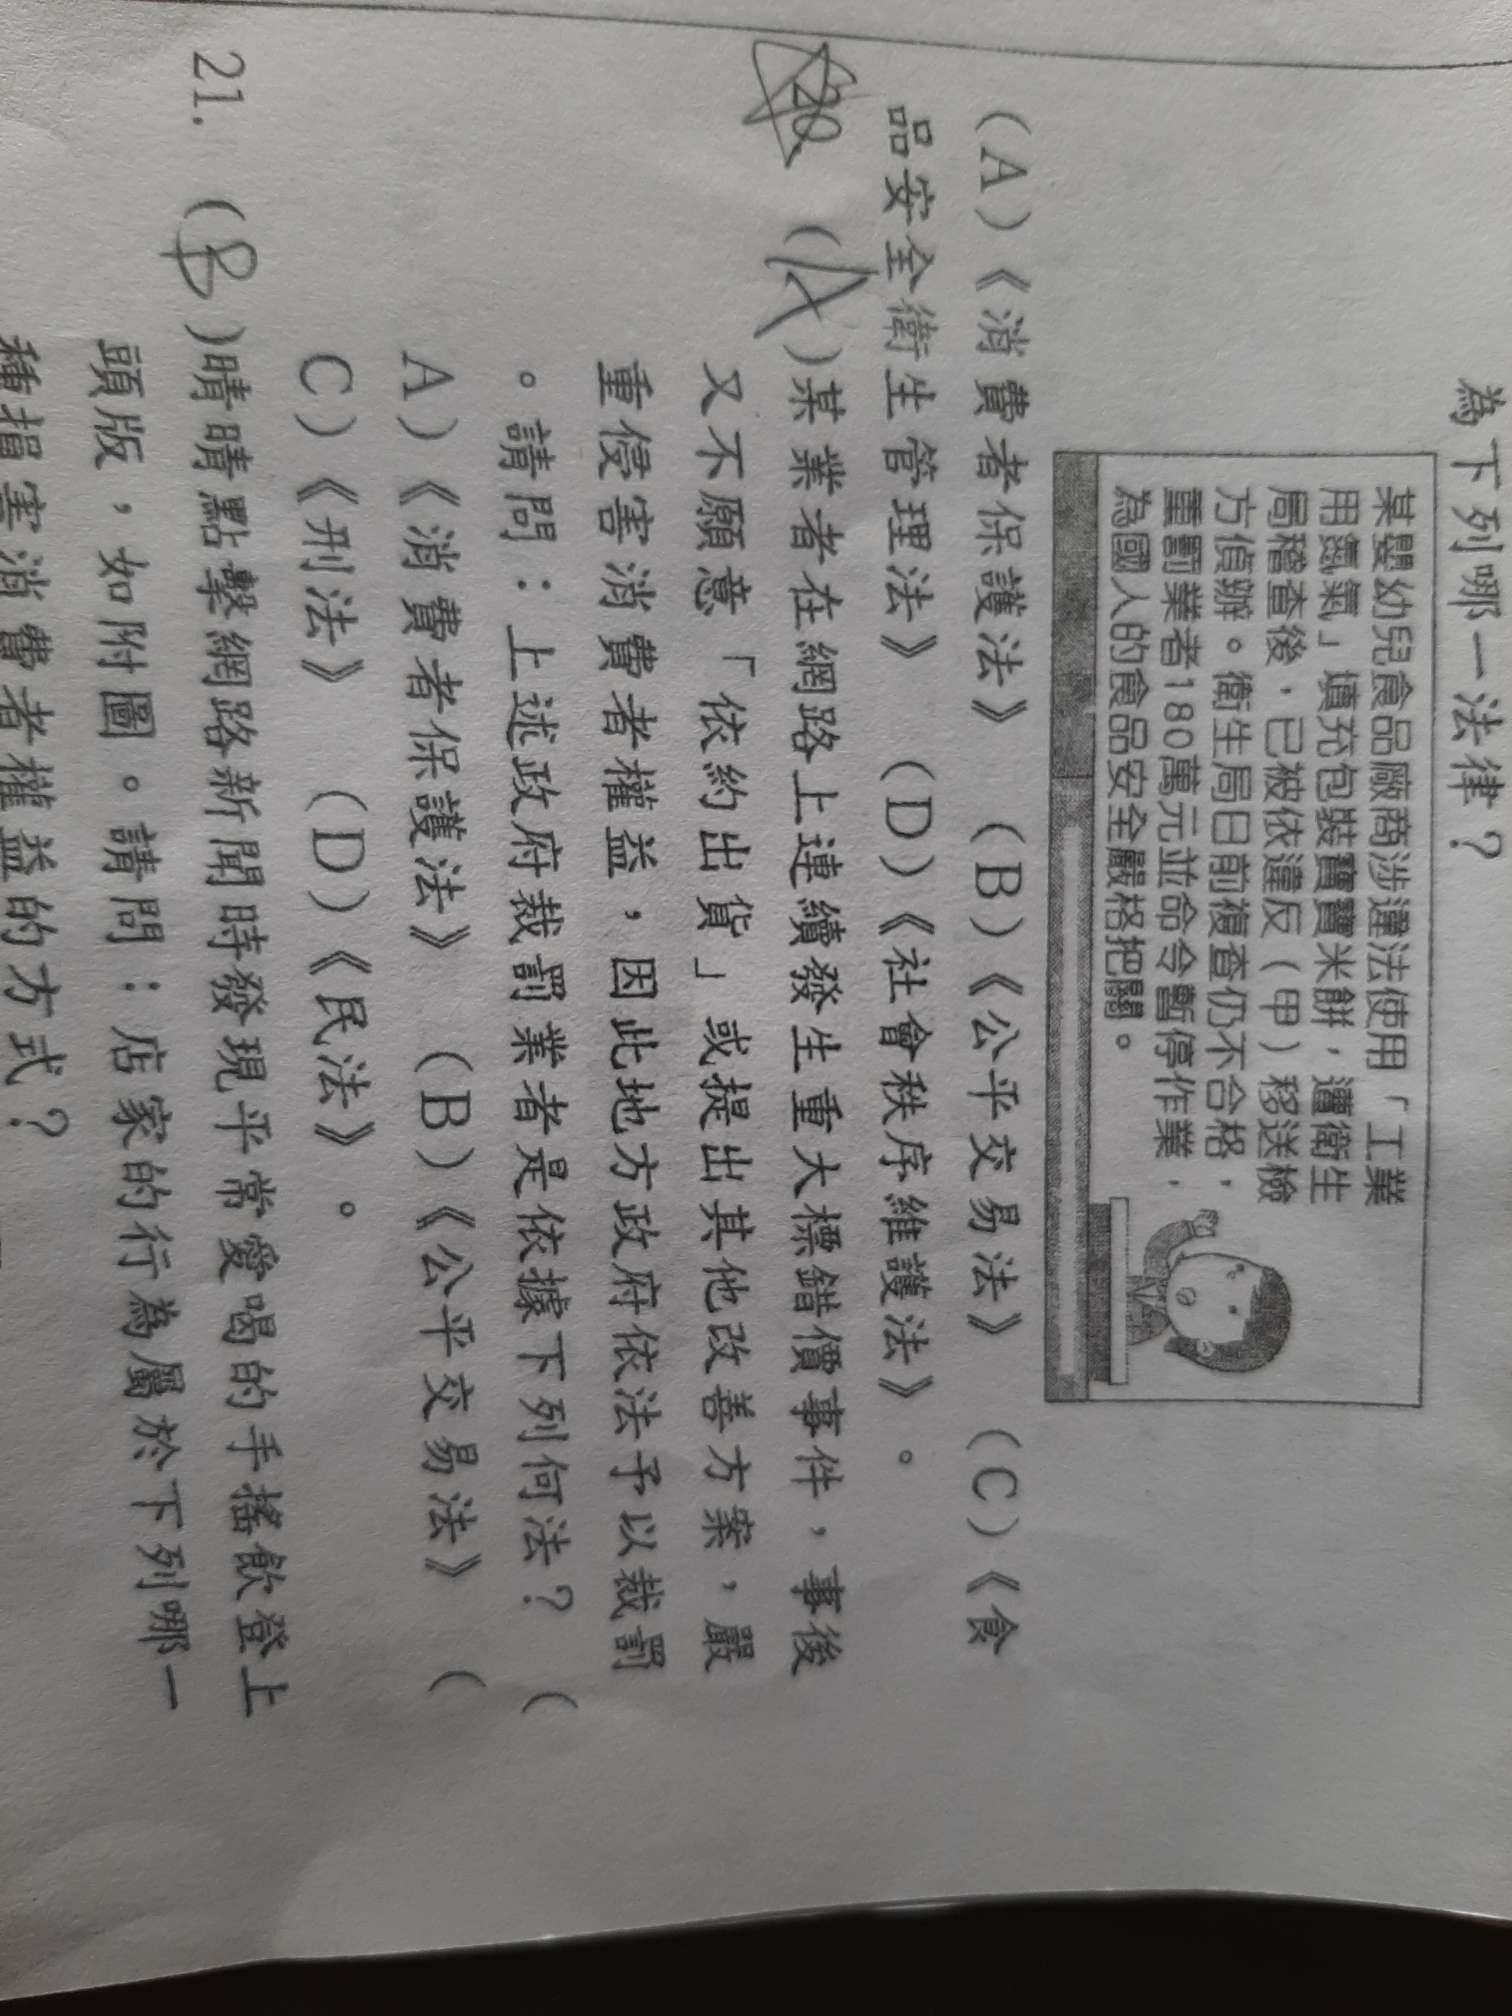 為下列哪一法律？
某嬰幼兒食品廠商涉違法使用「工業
用氮氣」填充包裝寶寶米餅，遭衛生
局稽查後，已被依違反（甲）移送檢
方偵辦。衛生局日前複查仍不合格，
重罰業者180萬元並命令暫停作業，
為國人的食品安全嚴格把關。
（A）《消費者保護法》　（B）《公平交易法》　（C）《食
品安全衛生管理法》　（D）《社會秩序維護法》。
20 （A）某業者在網路上連續發生重大標錯價事件，事後
又不願意「依約出貨」或提出其他改善方案，嚴
重侵害消費者權益，因此地方政府依法予以裁罰
。請問：上述政府裁罰業者是依據下列何法？　（
A）《消費者保護法》　（B）《公平交易法》　（
C）《刑法》　（D）《民法》。
21. （B）晴晴點擊網路新聞時發現平常愛喝的手搖飲登上
頭版，如附圖。請問：店家的行為屬於下列哪一
種損害消費者權益的方式？